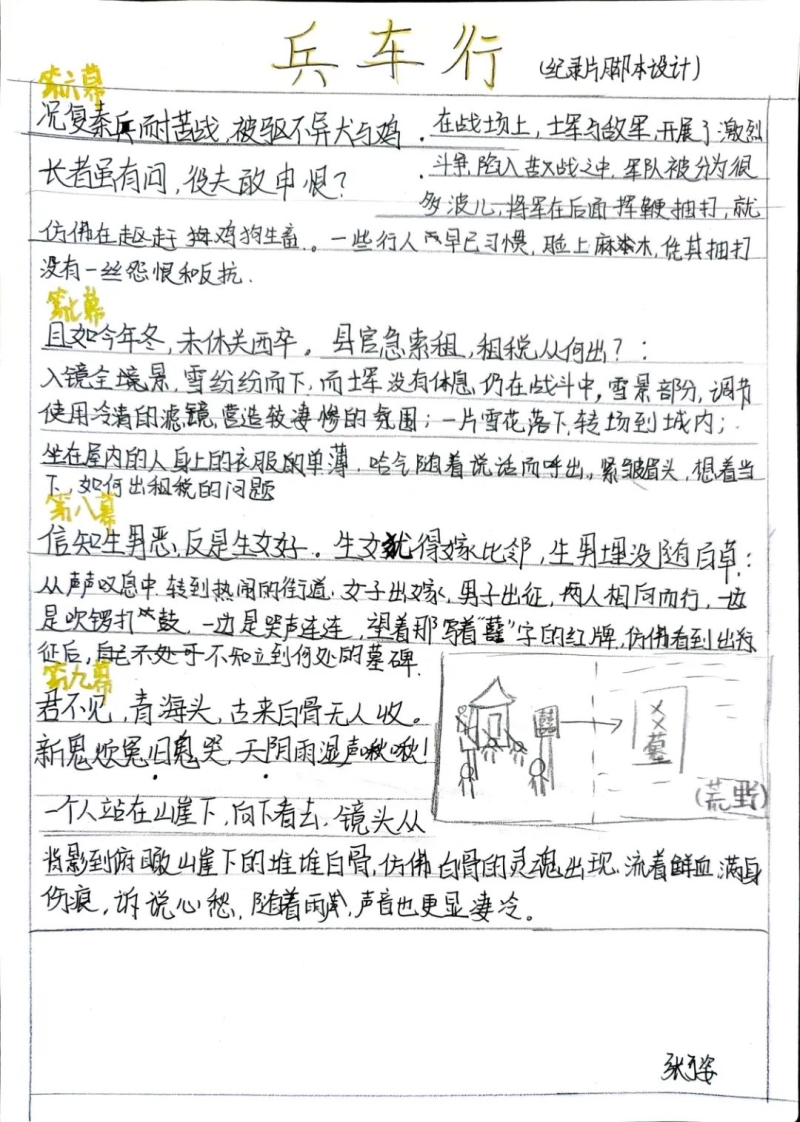 兵车行 (纪录片脚本设计)
第六幕
况复秦兵耐苦战，被驱不异犬与鸡．
长者虽有问，役夫敢申恨？
．在战场上，士军与敌军，开展了激烈
．斗争，陷入苦战之中，军队被分为很
多波儿，将军在后面挥鞭抽打，就
仿佛在赶鸡狗生畜。一些行人早已习惯，脸上麻木，任其抽打
没有一丝怨恨和反抗．
第七幕
且如今年冬，未休关西卒。县官急索租，租税从何出？：
入镜全境景，雪纷纷而下，而士军没有休息，仍在战斗中，雪景部分，调节
使用冷清的滤镜，营造较凄惨的氛围；一片雪花落下，转场到城内；
坐在屋内的人身上的衣服的单薄，哈气随着说话而呼出，紧皱眉头，想着当
下，如何出租税的问题
第八幕
信知生男恶，反是生女好。生女犹得嫁比邻，生男埋没随百草：
从声声叹息中，转到热闹的街道，女子出嫁，男子出征，两人相向而行，一边
是吹锣打鼓，一边是哭声连连，望着那写着"囍"字的红牌，仿佛看到出
征后，不知立到何处的墓碑．
第九幕
君不见，青海头，古来白骨无人收。
新鬼烦冤旧鬼哭，天阴雨湿声啾啾！
囍
墓
(荒野)
一个人站在山崖下，向下看去，镜头从
背影到俯瞰山崖下的堆堆白骨，仿佛白骨的灵魂出现，流着鲜血，满身
伤痕，诉说心愁，随着雨，声音也更显凄冷。